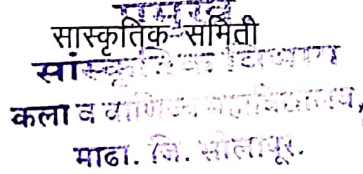 सांस्कृतिक समिती
सांस्कृतिक विभाग
कला व वाणिज्य महाविद्यालय,
माढा. जि. सोलापूर.